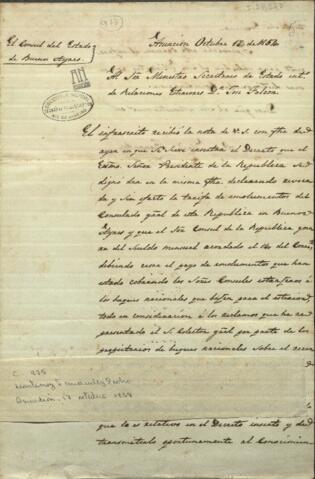 El Consul del Estado
de Buenos Ayres.
Asuncion Octubre 12 de 1854
Al Sor Ministro Secretario de Estado intº
de Relaciones Exteriores Dn José Falcon
El infrascrito recibió la nota de V. S. con fha de
ayer en que se sirve insertar el Decreto que el
Exmo. Señor Presidente de la Republica se
dignó dar en la misma fha, declarando revoca
da y sin efecto la tarifa de emolumentos del
Consulado gral de esta Republica en Buenos
Ayres y que el Sor Consul de la Republica goza
ra del sueldo mensual acordado el
debiendo cesar el pago de emolumentos que han
estado cobrando los Sores Consules estrangeros á
los buques nacionales que bajen para el exterior
todo en consideracion á los reclamos que ha re
presentado el S. Colector gral por parte de los
propietarios de buques nacionales sobre el
C. 975
Asunción, 12 octubre 1854
que le es relativo en el Decreto inserto y
transmitirlo oportunamente al Conocimien